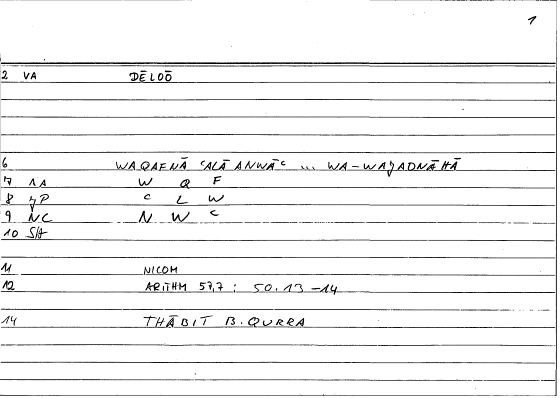 1
2 VA DĒLOŌ
6 WAQAFNĀ ʿALĀ ANWĀʿ ... WA-WAǦADNĀHĀ
7 1A W Q F
8 ǦP ʿ L W
9 NC N W ʿ
10 SH
11 NICOM
12 ARITHM 57,7 : 50.13-14
14 THĀBIT B. QURRA